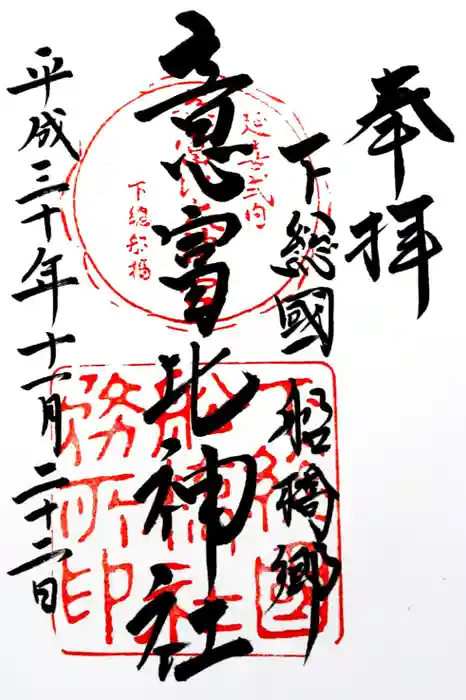 奉拝
下総國 船橋郷
意富比神社
平成三十年十一月二十二日
延喜式内
下總船橋
下総國
船橋
社
務所印